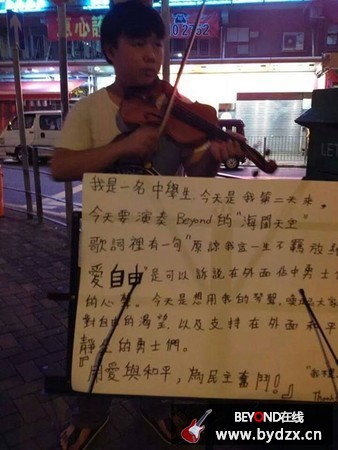 我是一名中學生，今天是我第二天來，
今天要演奏 Beyond 的"海闊天空"
歌詞裡有一句"原諒我這一生不羈放縱
愛自由"是可以訴說在外面佔中勇士
的心聲。今天是想用我的琴聲，喚起大家
對自由的渴望，以及支持在外面和平
靜坐的勇士們。
『用愛與和平，為民主奮鬥!』
Thank
BEYOND在线
www.bydzx.cn